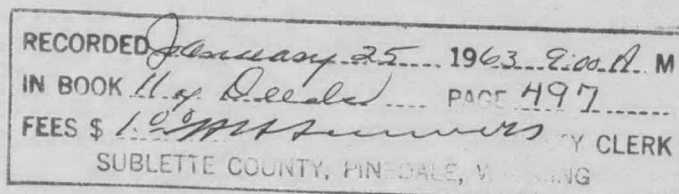 RECORDED January 25 1963 9:00 A. M
IN BOOK 11 of Deeds PAGE 497
FEES $ 1.00 Y CLERK
SUBLETTE COUNTY, PINEDALE, W MING